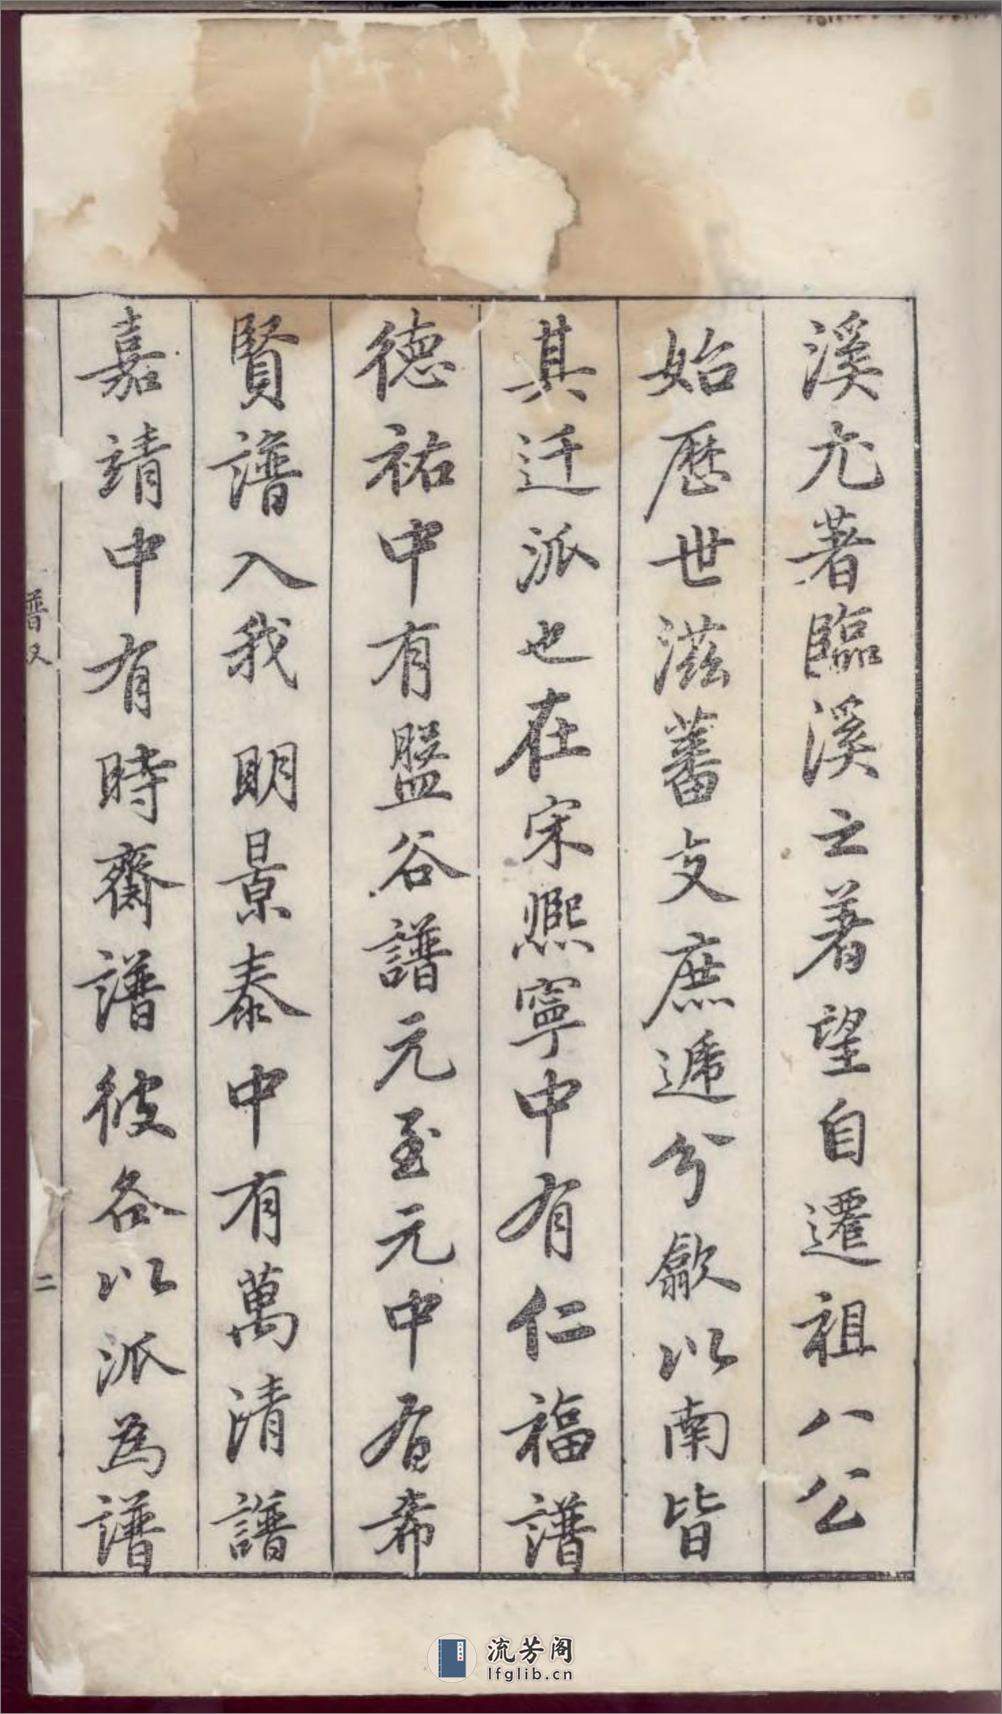 溪尤著臨溪之著望自遷祖八公
始歷世滋蕃支庶遞分歙以南皆
其迁派也在宋熈寧中有仁福譜
德祐中有盤谷譜元至元中有希
賢譜入我明景泰中有萬清譜
嘉靖中有時齋譜彼各以派為譜
譜又
二
流芳阁
lfglib.cn